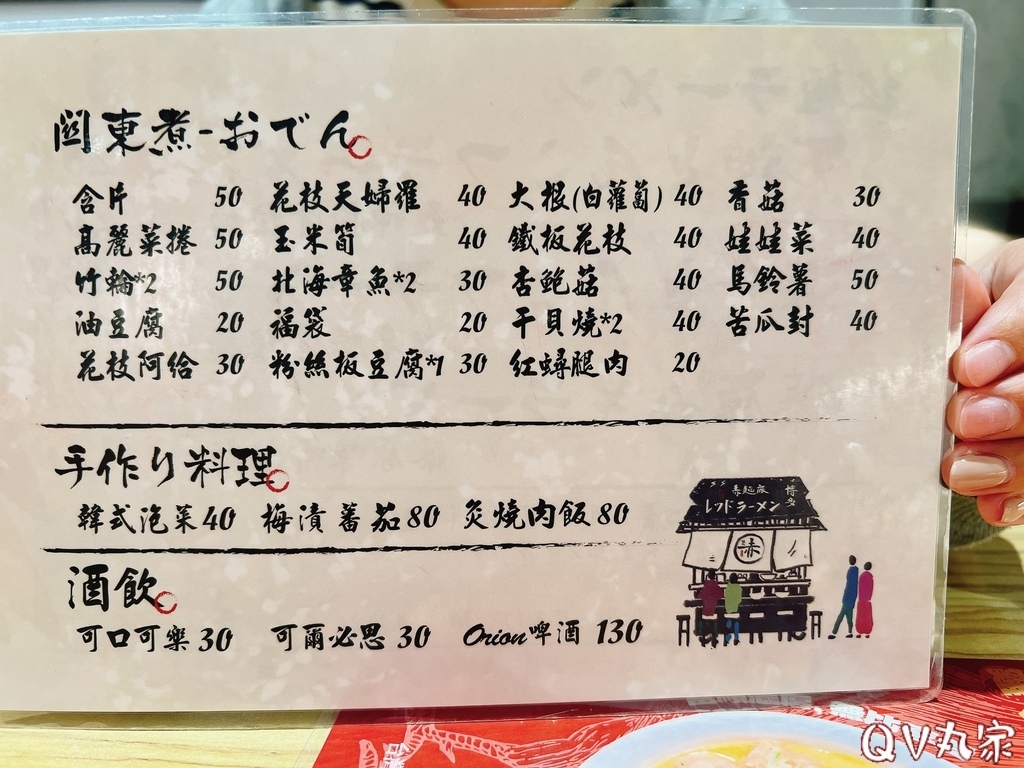 關東煮-おでん
含片 50 花枝天婦羅 40 大根(白蘿蔔) 40 香菇 30
高麗菜捲 50 玉米筍 40 鐵板花枝 40 娃娃菜 40
竹輪*2 50 北海章魚*2 30 杏鮑菇 40 馬鈴薯 50
油豆腐 20 福袋 20 干貝燒*2 40 苦瓜封 40
花枝阿給 30 粉絲板豆腐*1 30 紅蟳腿肉 20
手作り料理
韓式泡菜 40 梅漬蕃茄 80 炙燒肉飯 80
酒飲
可口可樂 30 可爾必思 30 Orion啤酒 130
赤麵廠 博多
レッドラーメン
赤
QV丸家